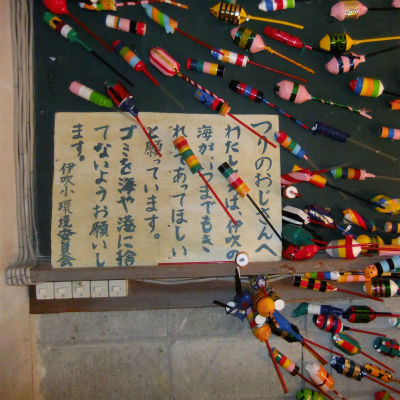 つりのおじさんへ
わたしたちは、伊吹の
海が、いつまでもき
れいであってほしい
と願っています。
ゴミを海や港に捨
てないようお願いし
ます。
伊吹小 環境委員会